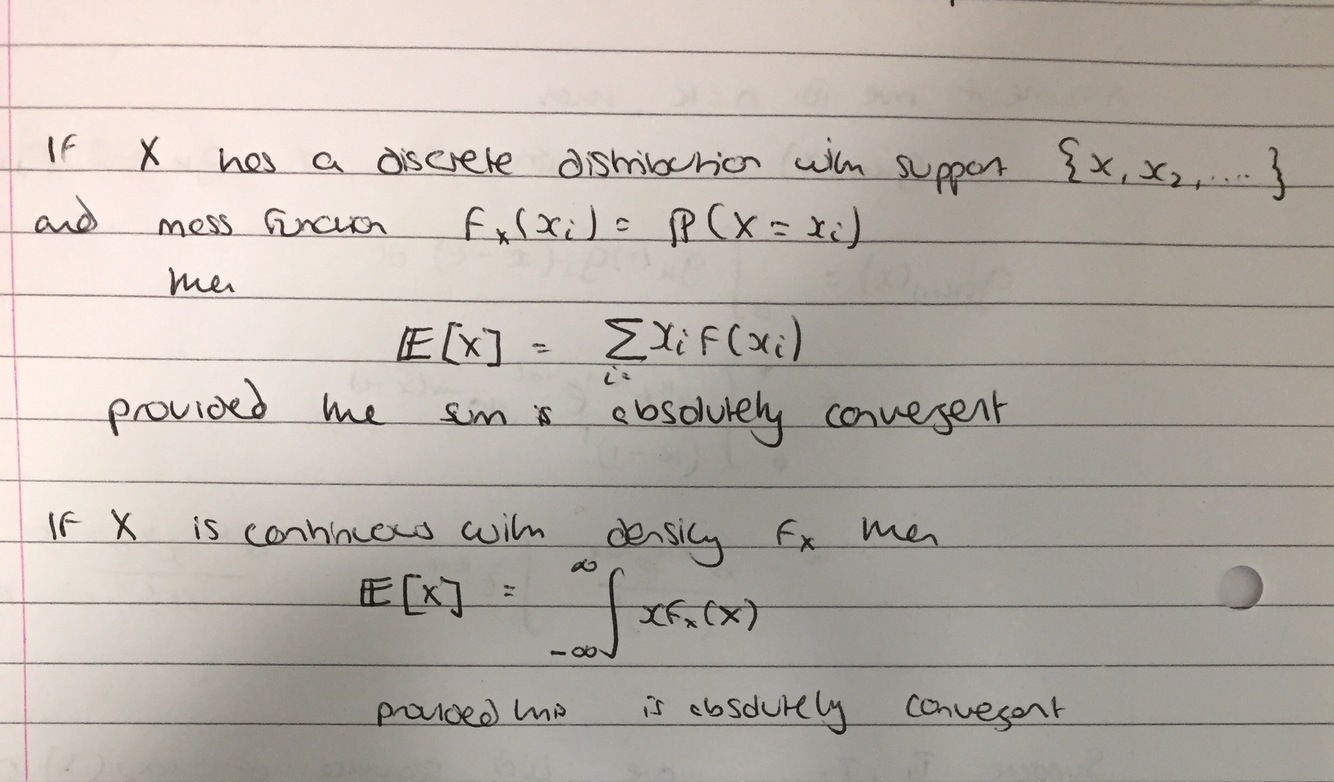 If X has a discrete distribution with support {x, x₂, .... }
and mass function fₓ(xᵢ) = ℙ(X = xᵢ)
then
𝔼[X] = ∑ xᵢ f(xᵢ)
i=
provided the sum is absolutely convergent
If X is continuous with density fₓ then
∞
𝔼[X] = ∫ x fₓ(x)
-∞
provided this is absolutely convergent